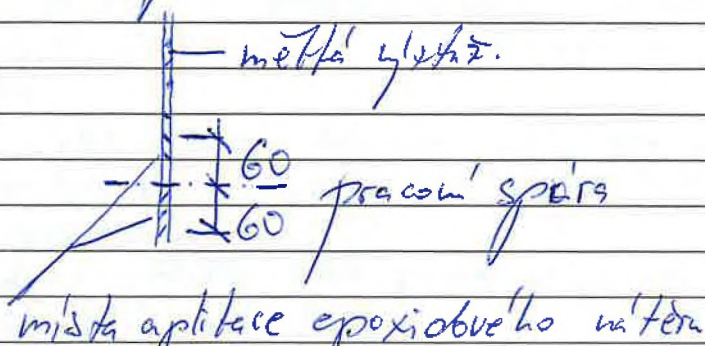 měkká výztuž.
60
60 pracovní spára
místa aplikace epoxidového nátěru